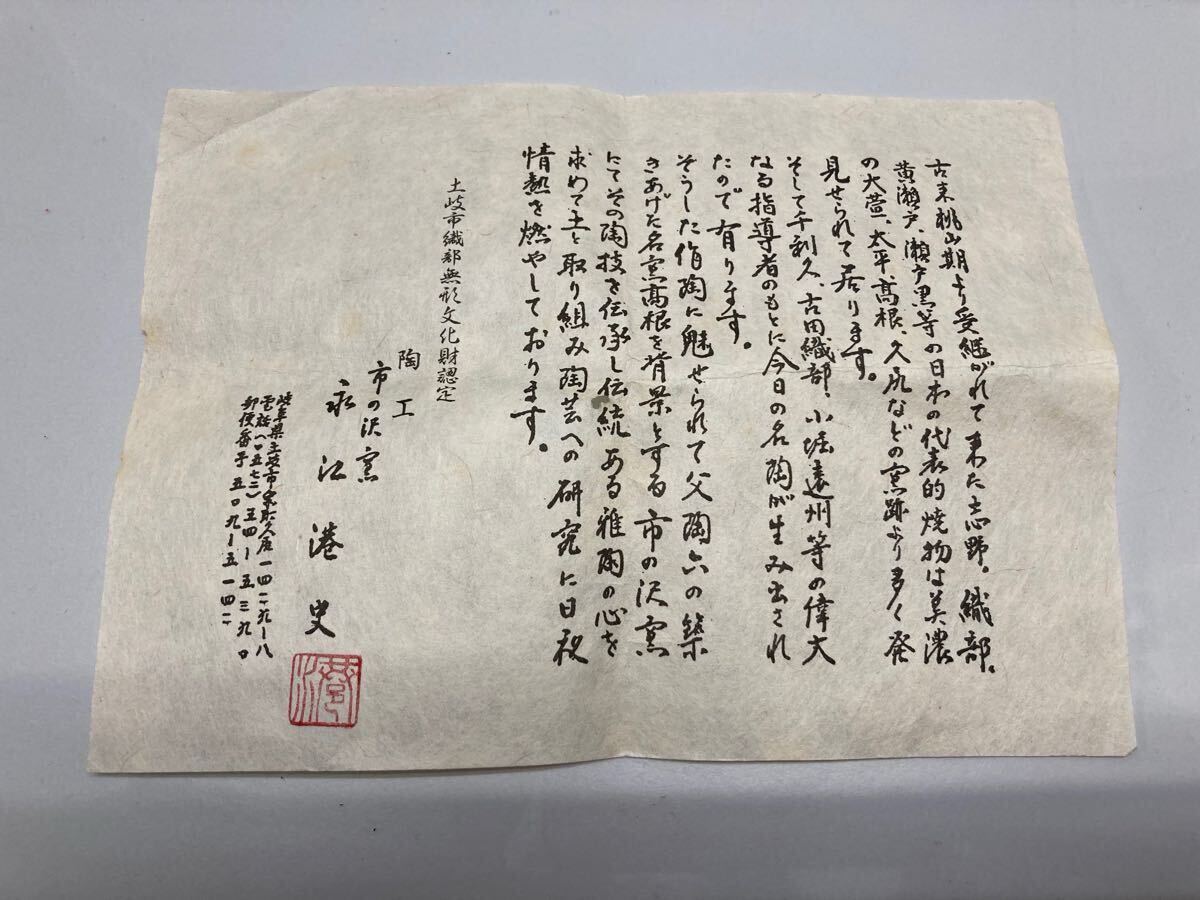 古来桃山期より受継がれて来た志野。織部。
黄瀬戸、瀬戸黒等の日本の代表的焼物は美濃
の大萱、太平、高根、久尻などの窯跡より多々発
見せられて居ります。
そして千利久、古田織部、小堀遠州等の偉大
なる指導者のもとに今日の名陶が生み出され
たので有ります。
そうした作陶に魅せられて父陶六の築
きあげた名窯高根を背景とする市の沢窯
にてその陶技を伝承し伝統ある雅陶の心を
求めて土と取り組み陶芸への研究に日夜
情熱を燃やしております。
土岐市織部無形文化財認定
陶工
市の沢窯
永江港史
岐阜県土岐市泉町久尻一四二九ー八
電話(〇五七二)五四ー五三九〇
郵便番号五〇九ー五一四二
港